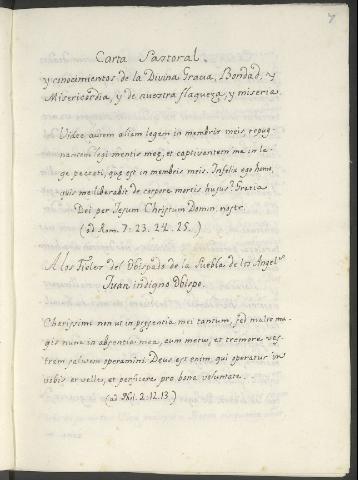 7
Carta Pastoral.
y conocimientos de la Divina Gracia, Bondad, y
Misericordia, y de nuestra flaqueza, y miseria.
Video autem aliam legem in membris meis, repug-
nantem legi mentis meę, et captivantem me in le-
ge peccati, quę est in membris meis. Infelix ego homo,
quis me liberabit de corpore mortis hujus? Gratia
Dei per Jesum Christum Domin. nostr.
(ad Rom. 7: 23. 24. 25.)
A los Fieles del Obispado de la Puebla de los Angels
Juan indigno Obispo.
Charissimi non ut in presentia mei tantum, sed multo ma-
gis nunc in absentia mea, cum metu, et tremore ves-
tram salutem operamini. Deus est enim, qui operatur in
vobis et velle, et perficere pro bona voluntate.
(ad Phil. 2: 12. 13.)